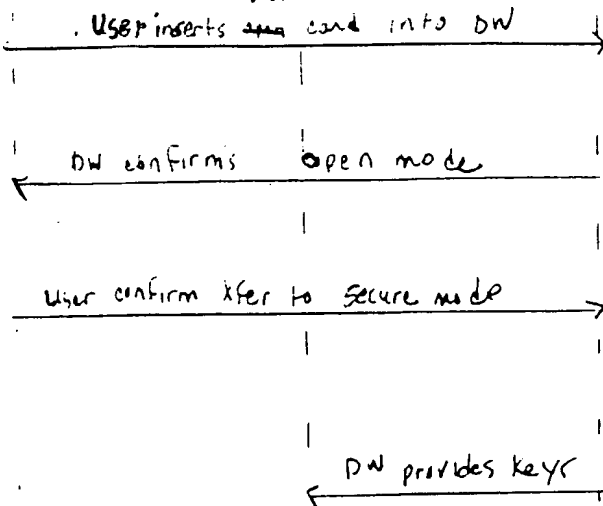 User inserts card into DW
DW confirms open mode
User confirm xfer to secure mode
DW provides keys